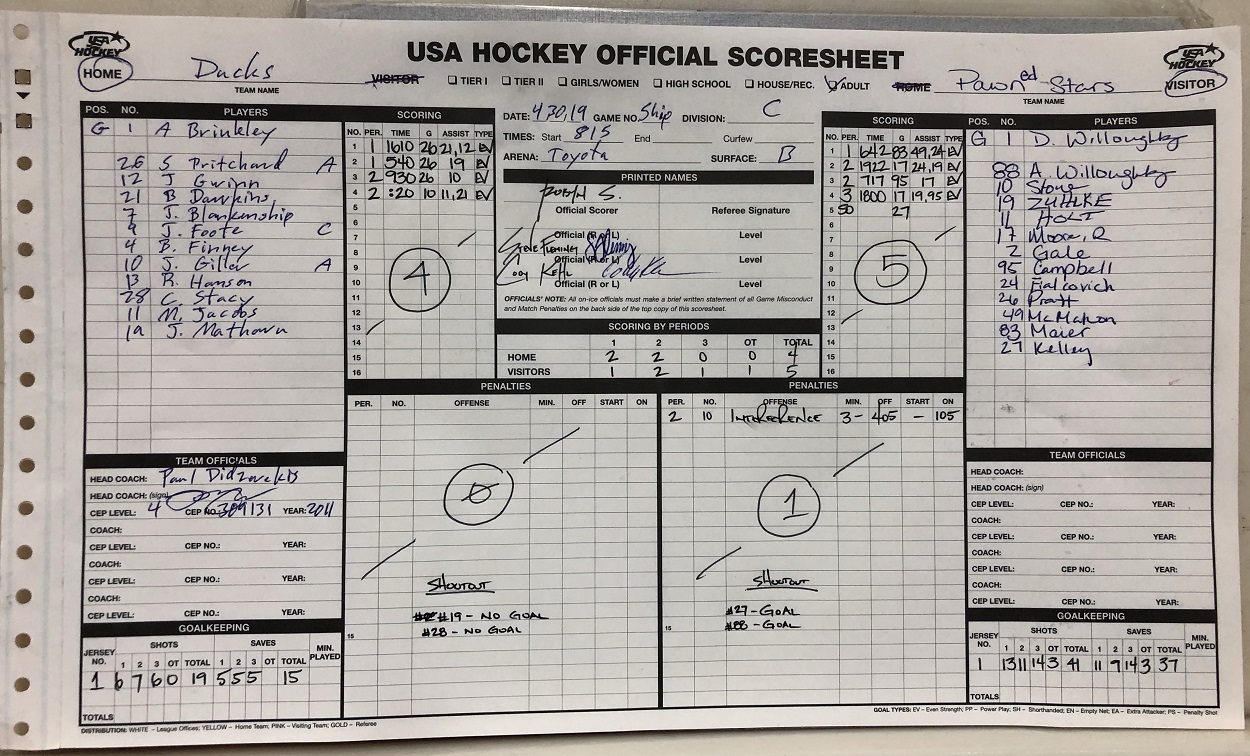 USA HOCKEY OFFICIAL SCORESHEET
USA HOCKEY
USA HOCKEY
HOME Ducks
TEAM NAME
VISITOR TIER I TIER II GIRLS/WOMEN HIGH SCHOOL HOUSE/REC. ADULT HOME
Pawn ed Stars VISITOR
TEAM NAME
POS. NO. PLAYERS
G 1 A Brinkley
26 S Pritchard A
12 J Gwinn
21 B Dawkins
7 J. Blankinship
9 J. Foote C
4 B. Finney
10 J. Giller A
13 R. Hanson
28 C. Stacy
11 M. Jacobs
19 J. Mathown
SCORING
NO. PER. TIME G ASSIST TYPE
1 1 1610 26 21,12 EV
2 1 540 26 19 EV
3 2 930 26 10 EV
4 2 :20 10 11,21 EV
5
6
7
8
9
10
11
12
13
14
15
16
4
DATE: 4,30,19 GAME NO. Ship DIVISION: C
TIMES: Start 815 End Curfew
ARENA: Toyota SURFACE: B
PRINTED NAMES
Robyn S.
Official Scorer Referee Signature
Official (R or L) Level
Steve Fleming
Official (R or L) Level
Cody Kehl
Official (R or L) Level
OFFICIALS' NOTE: All on-ice officials must make a brief written statement of all Game Misconduct
and Match Penalties on the back side of the top copy of this scoresheet.
SCORING BY PERIODS
1 2 3 OT TOTAL
HOME 2 2 0 0 4
VISITORS 1 2 1 1 5
SCORING
NO. PER. TIME G ASSIST TYPE
1 1 642 83 49,24 EV
2 2 1922 17 24,19 EV
3 2 717 95 17 EV
4 3 1800 17 19,95 EV
5 SO 27
6
7
8
9
10
11
12
13
14
15
16
5
POS. NO. PLAYERS
G 1 D. Willoughby
88 A. Willoughby
10 Stone
19 ZUHLKE
11 HOLT
17 Moore, R
2 Gale
95 Campbell
24 Fialcovich
26 Pratt
49 McMahon
83 Maier
27 Kelley
PENALTIES
PER. NO. OFFENSE MIN. OFF START ON
0
15
SHOOTOUT
#19 - NO GOAL
#28 - NO GOAL
PENALTIES
PER. NO. OFFENSE MIN. OFF START ON
2 10 INTERFERENCE 3 - 405 - 105
1
15
SHOOTOUT
#27 - GOAL
#88 - GOAL
TEAM OFFICIALS
HEAD COACH: Paul
HEAD COACH: (sign)
CEP LEVEL: 4 CEP NO.: 309131 YEAR: 2011
COACH:
CEP LEVEL: CEP NO.: YEAR:
COACH:
CEP LEVEL: CEP NO.: YEAR:
COACH:
CEP LEVEL: CEP NO.: YEAR:
GOALKEEPING
JERSEY NO. SHOTS SAVES MIN. PLAYED
1 2 3 OT TOTAL 1 2 3 OT TOTAL
1 6 7 6 0 19 5 5 5 15
TOTALS
TEAM OFFICIALS
HEAD COACH:
HEAD COACH: (sign)
CEP LEVEL: CEP NO.: YEAR:
COACH:
CEP LEVEL: CEP NO.: YEAR:
COACH:
CEP LEVEL: CEP NO.: YEAR:
COACH:
CEP LEVEL: CEP NO.: YEAR:
GOALKEEPING
JERSEY NO. SHOTS SAVES MIN. PLAYED
1 2 3 OT TOTAL 1 2 3 OT TOTAL
1 13 11 14 3 41 11 9 14 3 37
TOTALS
DISTRIBUTION: WHITE – League Offices; YELLOW – Home Team; PINK – Visiting Team; GOLD – Referee
GOAL TYPES: EV – Even Strength; PP – Power Play; SH – Shorthanded; EN – Empty Net; EA – Extra Attacker; PS – Penalty Shot